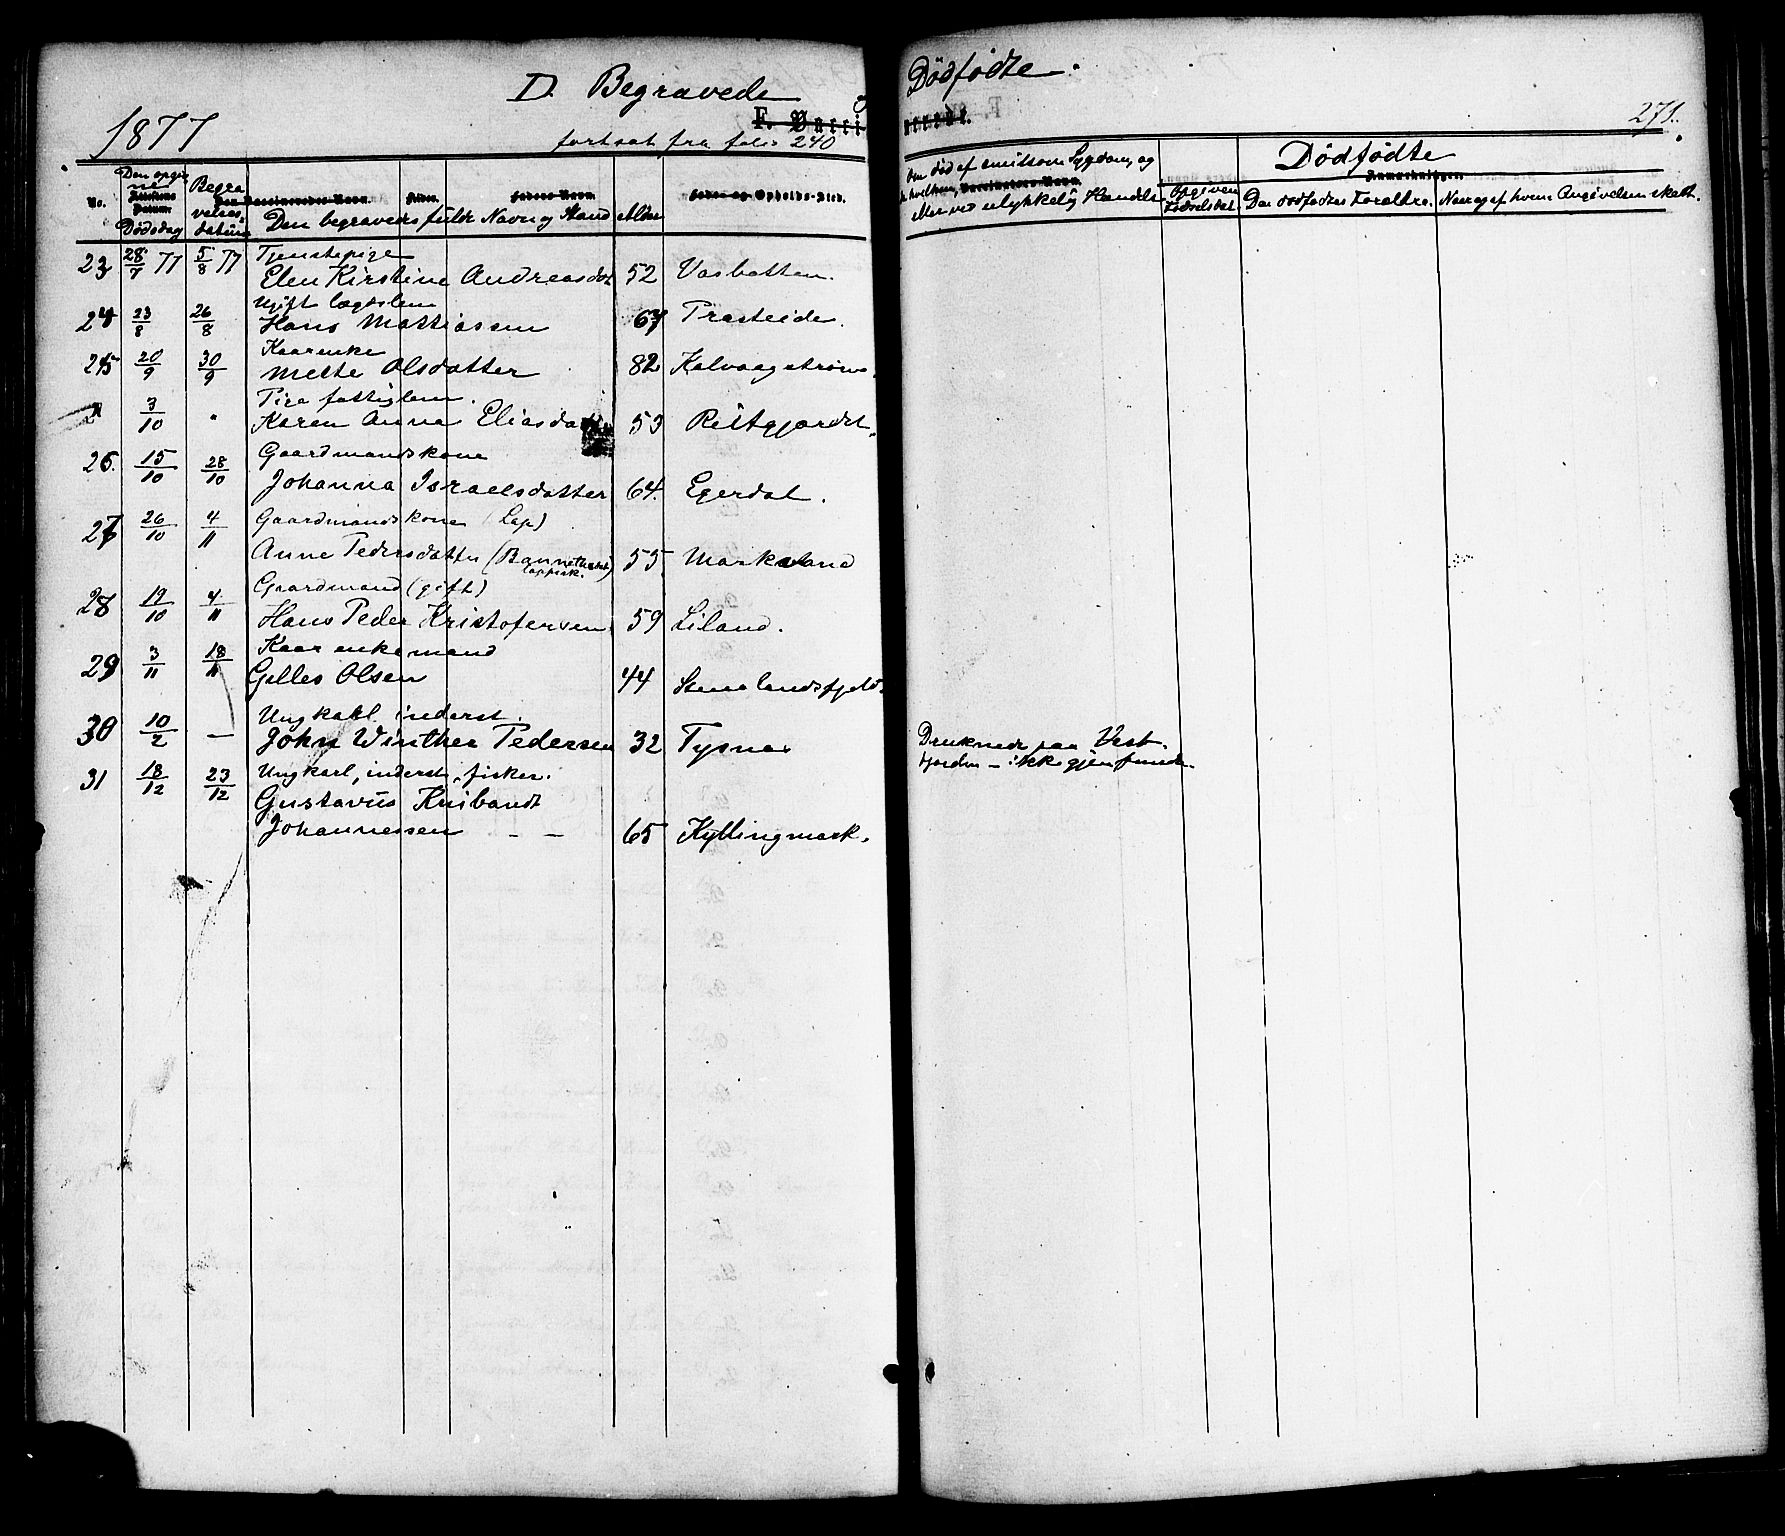 D. Begravede og Dødfødte.
1877
F. Vacci nerede.
271.
fortsat fra folio 240
No.
Den opgivne Dødsdag
Begravelsesdatum
Den Vaccineredes Navn.
Alder.
Faders Navn.
Den begravedes fulde Navn og Stand
Alder
Føde- og Opholds-Sted.
Om død af smitsom Sygdom, og
Vaccinateurs Navn.
eller ved ulykkelig Hændelse
Opgiven Fødselsdat.
Dødfødte
Anmærkninger.
De dødfødtes Forældre.
Naar og af hvem Angivelsen skeet.
23 28/7 77 5/8 77 Tjenestepige
Elen Kirstine Andreasdat 52 Vasbotten.
24 23/8 26/8 Ugift lægdslem
Hans Mathiassen 67 Præsteide.
25 20/9 30/9 Kaarenke
Mette Olsdatter 82 Kalvaagstrøm.
3/10 " Pige fattiglem.
Karen Anna Eliasdatter 53 Reitgjærdet.
26. 15/10 28/10 Gaardmandskone
Johanna Israelsdatter 64. Egerdal.
27 26/10 4/11 Gaardmandskone (Lap)
Anne Pedersdatter (Banneth lappisk.) 55 Markeland
28 19/10 4/11 Gaardmand (gift)
Hans Peder Kristofersen 59 Liland.
29 3/11 18/11 Kaar enkemand
Gilles Olsen 44 Stenelandsfjeld.
30 10/2 — Ungkarl inderst.
John Winther Pedersen 32 Tysnes Druknede paa Vest-
fjorden – ikke gjenfunden.
31 18/12 23/12 Ungkarl, inderst, fisker.
Gustavus Knibandt
Johannessen – – 65 Kyllingmark.